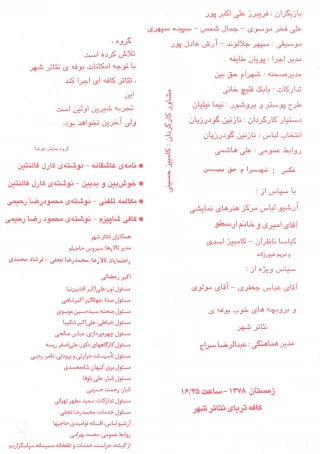 بازیگران : فریبرز علی اکبر پور
علی فخر موسوی - جمال شمس - سپیده سپهری
موسیقی : سپهر جلالوند - آرش عادل پور
مدیر اجرا : پویان طایفه
مدیرصحنه : شهرام حق بین
تدارکات : بابک قلیچ خانی
طرح پوستر و بروشور : نیما نیلیان
دستیار کارگردان : نازنین گودرزیان
انتخاب لباس : نازنین گودرزیان
روابط عمومی : علی هاشمی
عکس : شهرام حق بین
با سپاس از :
آرشیو لباس مرکز هنرهای نمایشی
آقای امیری و خانم ارسطو
کیاسا ناظران - کامبیز اسدی
و مریم فیوززاده
سپاس ویژه از :
آقای عباس جعفری - آقای مولوی
و بروبچه های خوب بوفه ی
تئاتر شهر
مدیر هماهنگی : عبدالرضا سراج
زمستان ۱۳۷۸ - ساعت ۱۶/۴۵
کافه تریای تئاتر شهر
مشاور کارگردان : کامبیز حسینی
گروه ،
تلاش کرده است
با توجه امکانات بوفه ی تئاتر شهر
، تئاتر کافه ای اجرا کند
این
تجربه شیرین اولین است
ولی آخرین نخواهد بود.
گروه نمایش
نامه‌ی عاشقانه - نوشته‌ی کارل فالنتین
خوش‌بین و بدبین - نوشته‌ی کارل فالنتین
مکالمه تلفنی - نوشته‌ی محمودرضا رحیمی
کافی شاپیزم - نوشته‌ی محمود رضا رحیمی
همکاران تئاتر شهر
مدیر تالارها: سیروس حاجیلو
راهنمایان تالارها: محمدرضا نجفی - فرشاد محمدی
اکبر رمضانی
مسئول نور: علی‌اکبر افشین‌نیا
مسئول صدا: جهانگیر اکبرشاهی
مسئول صحنه: سیدحسین موسوی
مسئول خیاطی: علی‌اکبر شکیبا
مسئول چهره‌پردازی: عباس صالحی
مسئول کارگاههای دکور: علی‌اصغر ریسه
مسئول تأسیسات حرارتی و برودتی: ناصر رجبی
مسئول برق: کیهان شاه‌محمدی
مسئول انبار: علی باوفا
انبار: رحمت حسینی
مسئول تدارکات: سعید مطهر تهرانی
مسئول خدمات: محمدرضا نجفی
آرشیو لباس: افسانه توامیدی حاجیها
روابط عمومی: محمد بهرامی
از گیشه، حراست، خدمات و تلفخانه صمیمانه سپاسگزاریم.